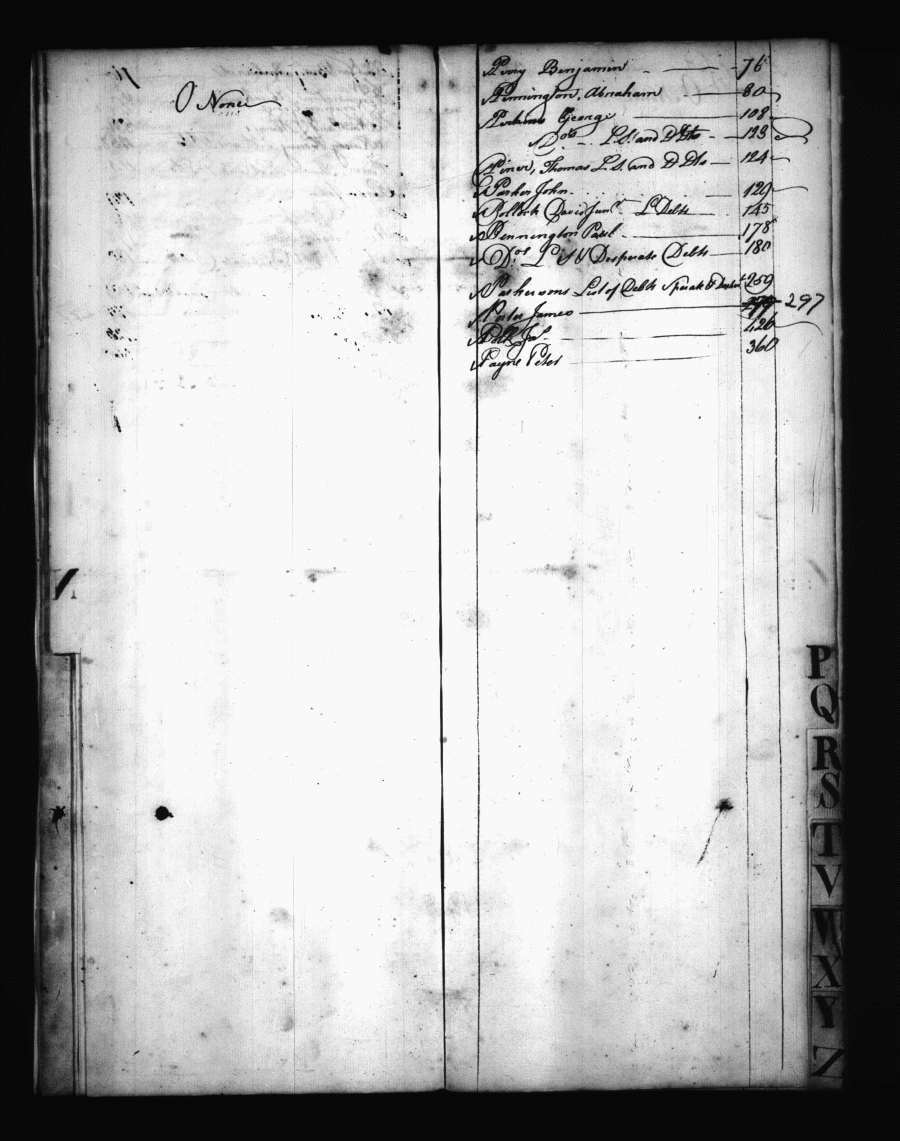 O None
Perry Benjamin 76
Pennington, Abraham 80
Perkins George 108
Do L.S. and D Dto 123
Piner, Thomas L.S. and D Dts 124
Parker John 129
Pollock David Junr L Debts 145
Pennington Paul 178
Do L S & Desperate Debts 180
List of Debts Sperate & Desperate 259
James 297
426
Payne Peter 360
P
Q
R
S
T
V
W
X
Y
Z